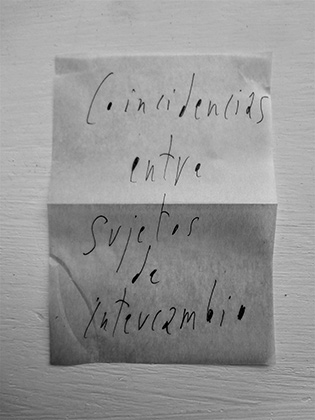 Coincidencias
entre
Sujetos
de
intercambio